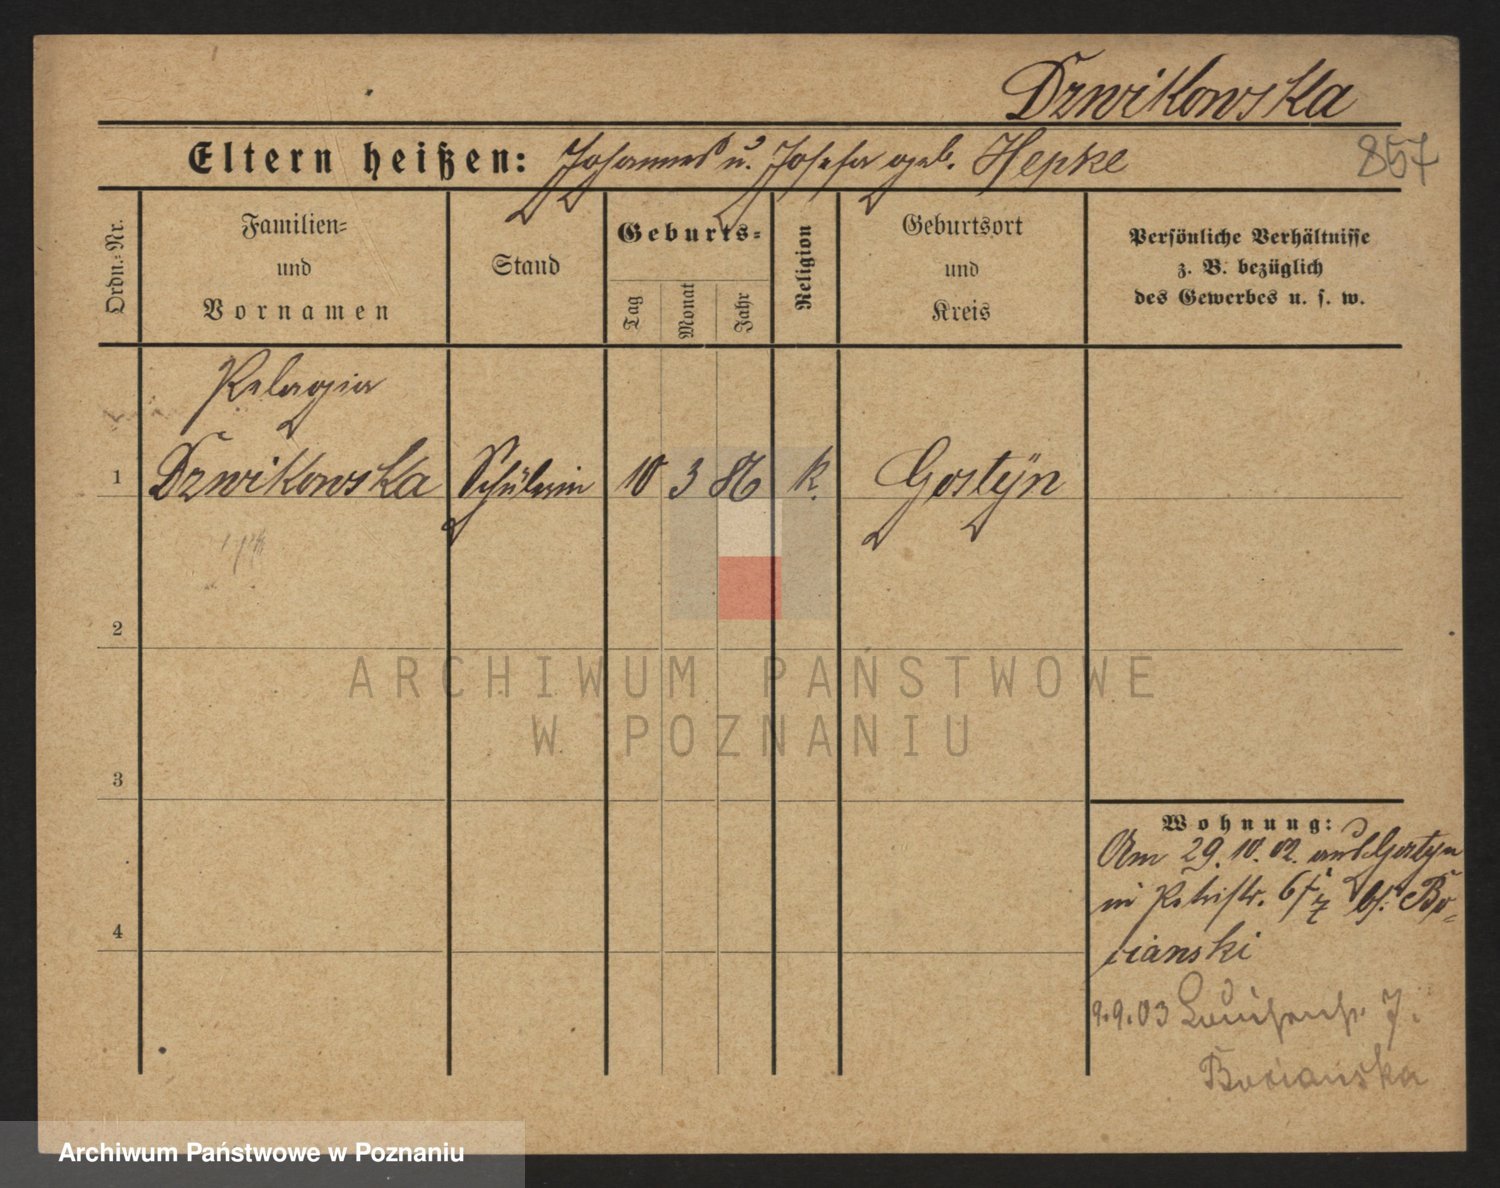 Drwikowska
Eltern heißen: Johannes u. Josefa geb. Hepke
857
Ordn.-Nr.
Familien-
und
Vornamen
Stand
Geburts-
Tag
Monat
Jahr
Religion
Geburtsort
und
Kreis
Persönliche Verhältnisse
z. B. bezüglich
des Gewerbes u. s. w.
Pelagia
1 Drwikowska Schülerin 10 3 86 k. Gostyn
2
3
4
Wohnung:
Am 29. 10. 02. aus Gostyn
in Petristr. 6 bei Bo-
cianski
9.9.03 Louisenstr. 7.
Bocianska
ARCHIWUM PAŃSTWOWE
W POZNANIU
Archiwum Państwowe w Poznaniu